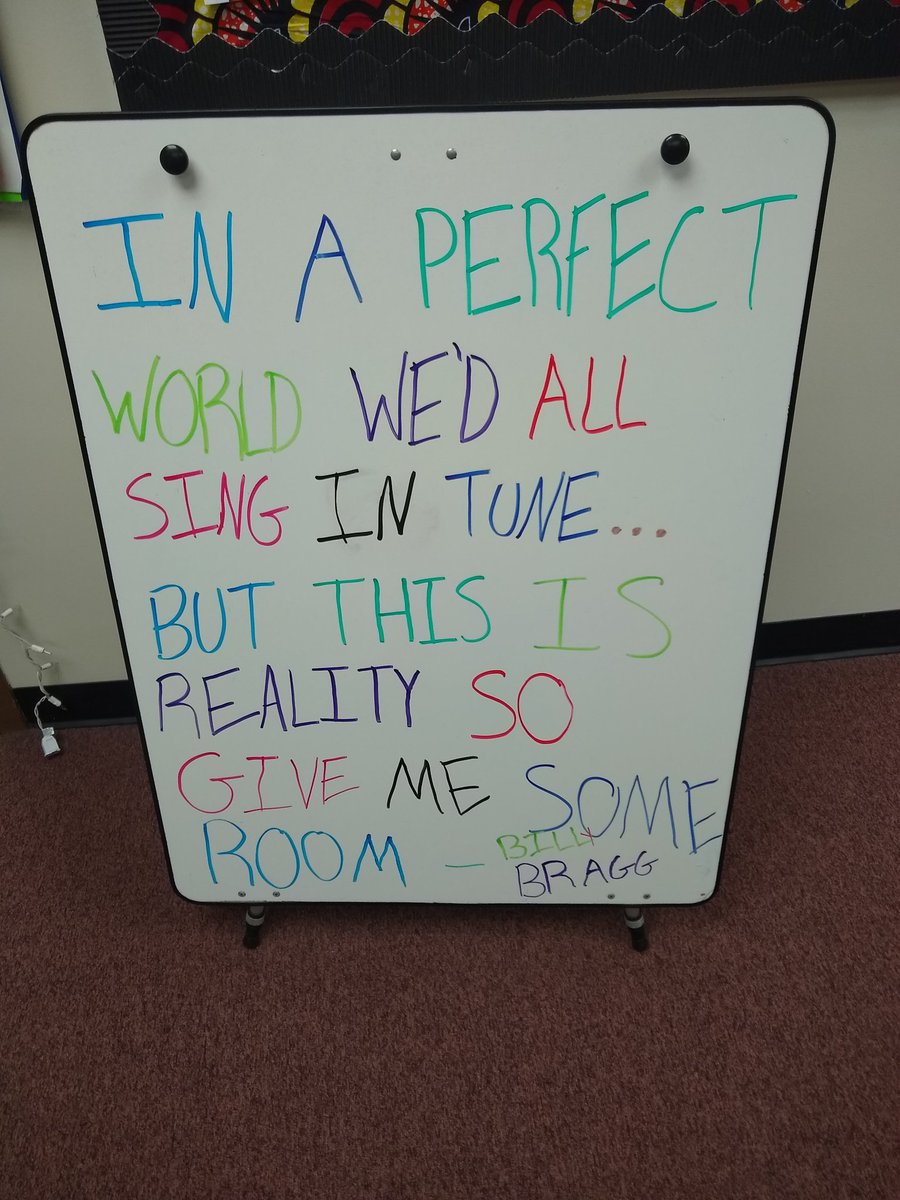 IN A PERFECT
WORLD WE'D ALL
SING IN TUNE...
BUT THIS IS
REALITY SO
GIVE ME SOME
ROOM - BILLY
BRAGG